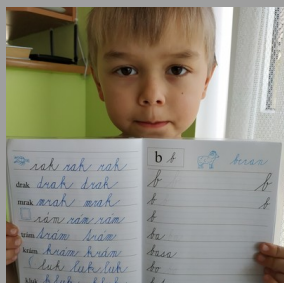 rak rak rak
drak drak drak
mrak mrak mrak
rám rám rám
srám srám
krám krám krám
luk luk luk
kluk kluk
b b
beran
b b
b b
b
ba
basa
bo